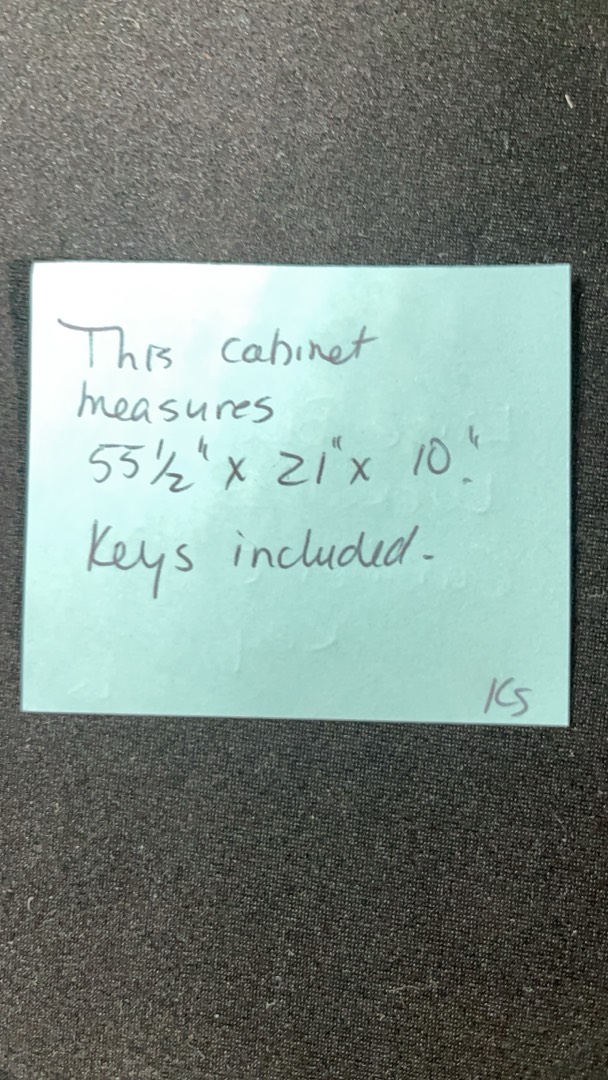 This cabinet
measures
55 1/2" x 21" x 10."
Keys included.
KS